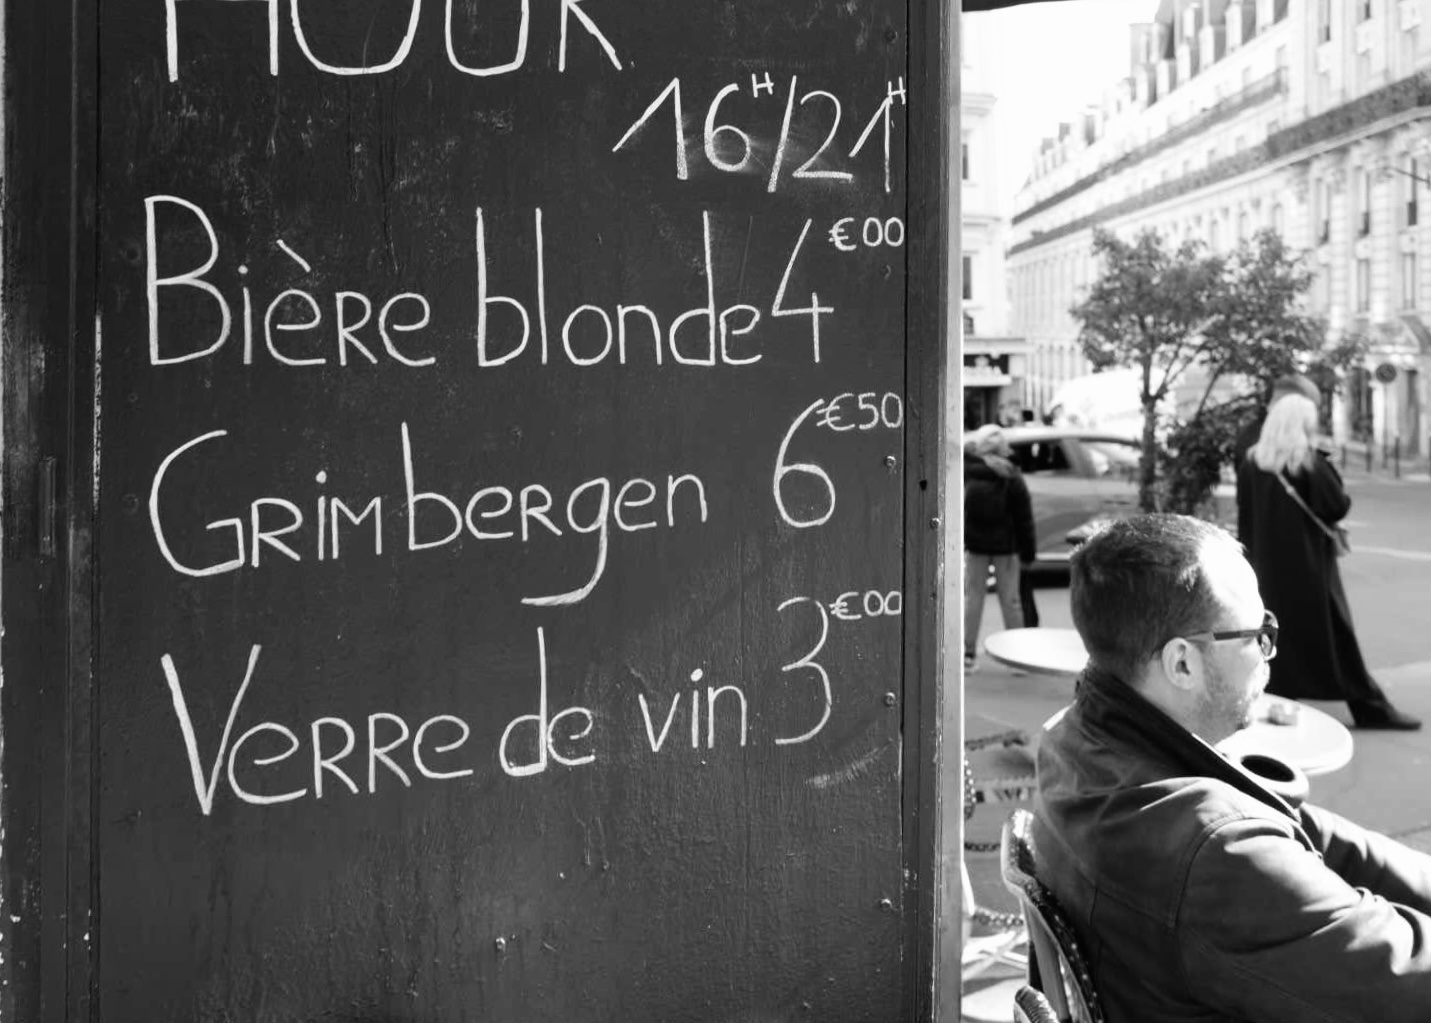 HOUR
16H/21H
Bière blonde 4€00
Grimbergen 6€50
Verre de vin 3€00